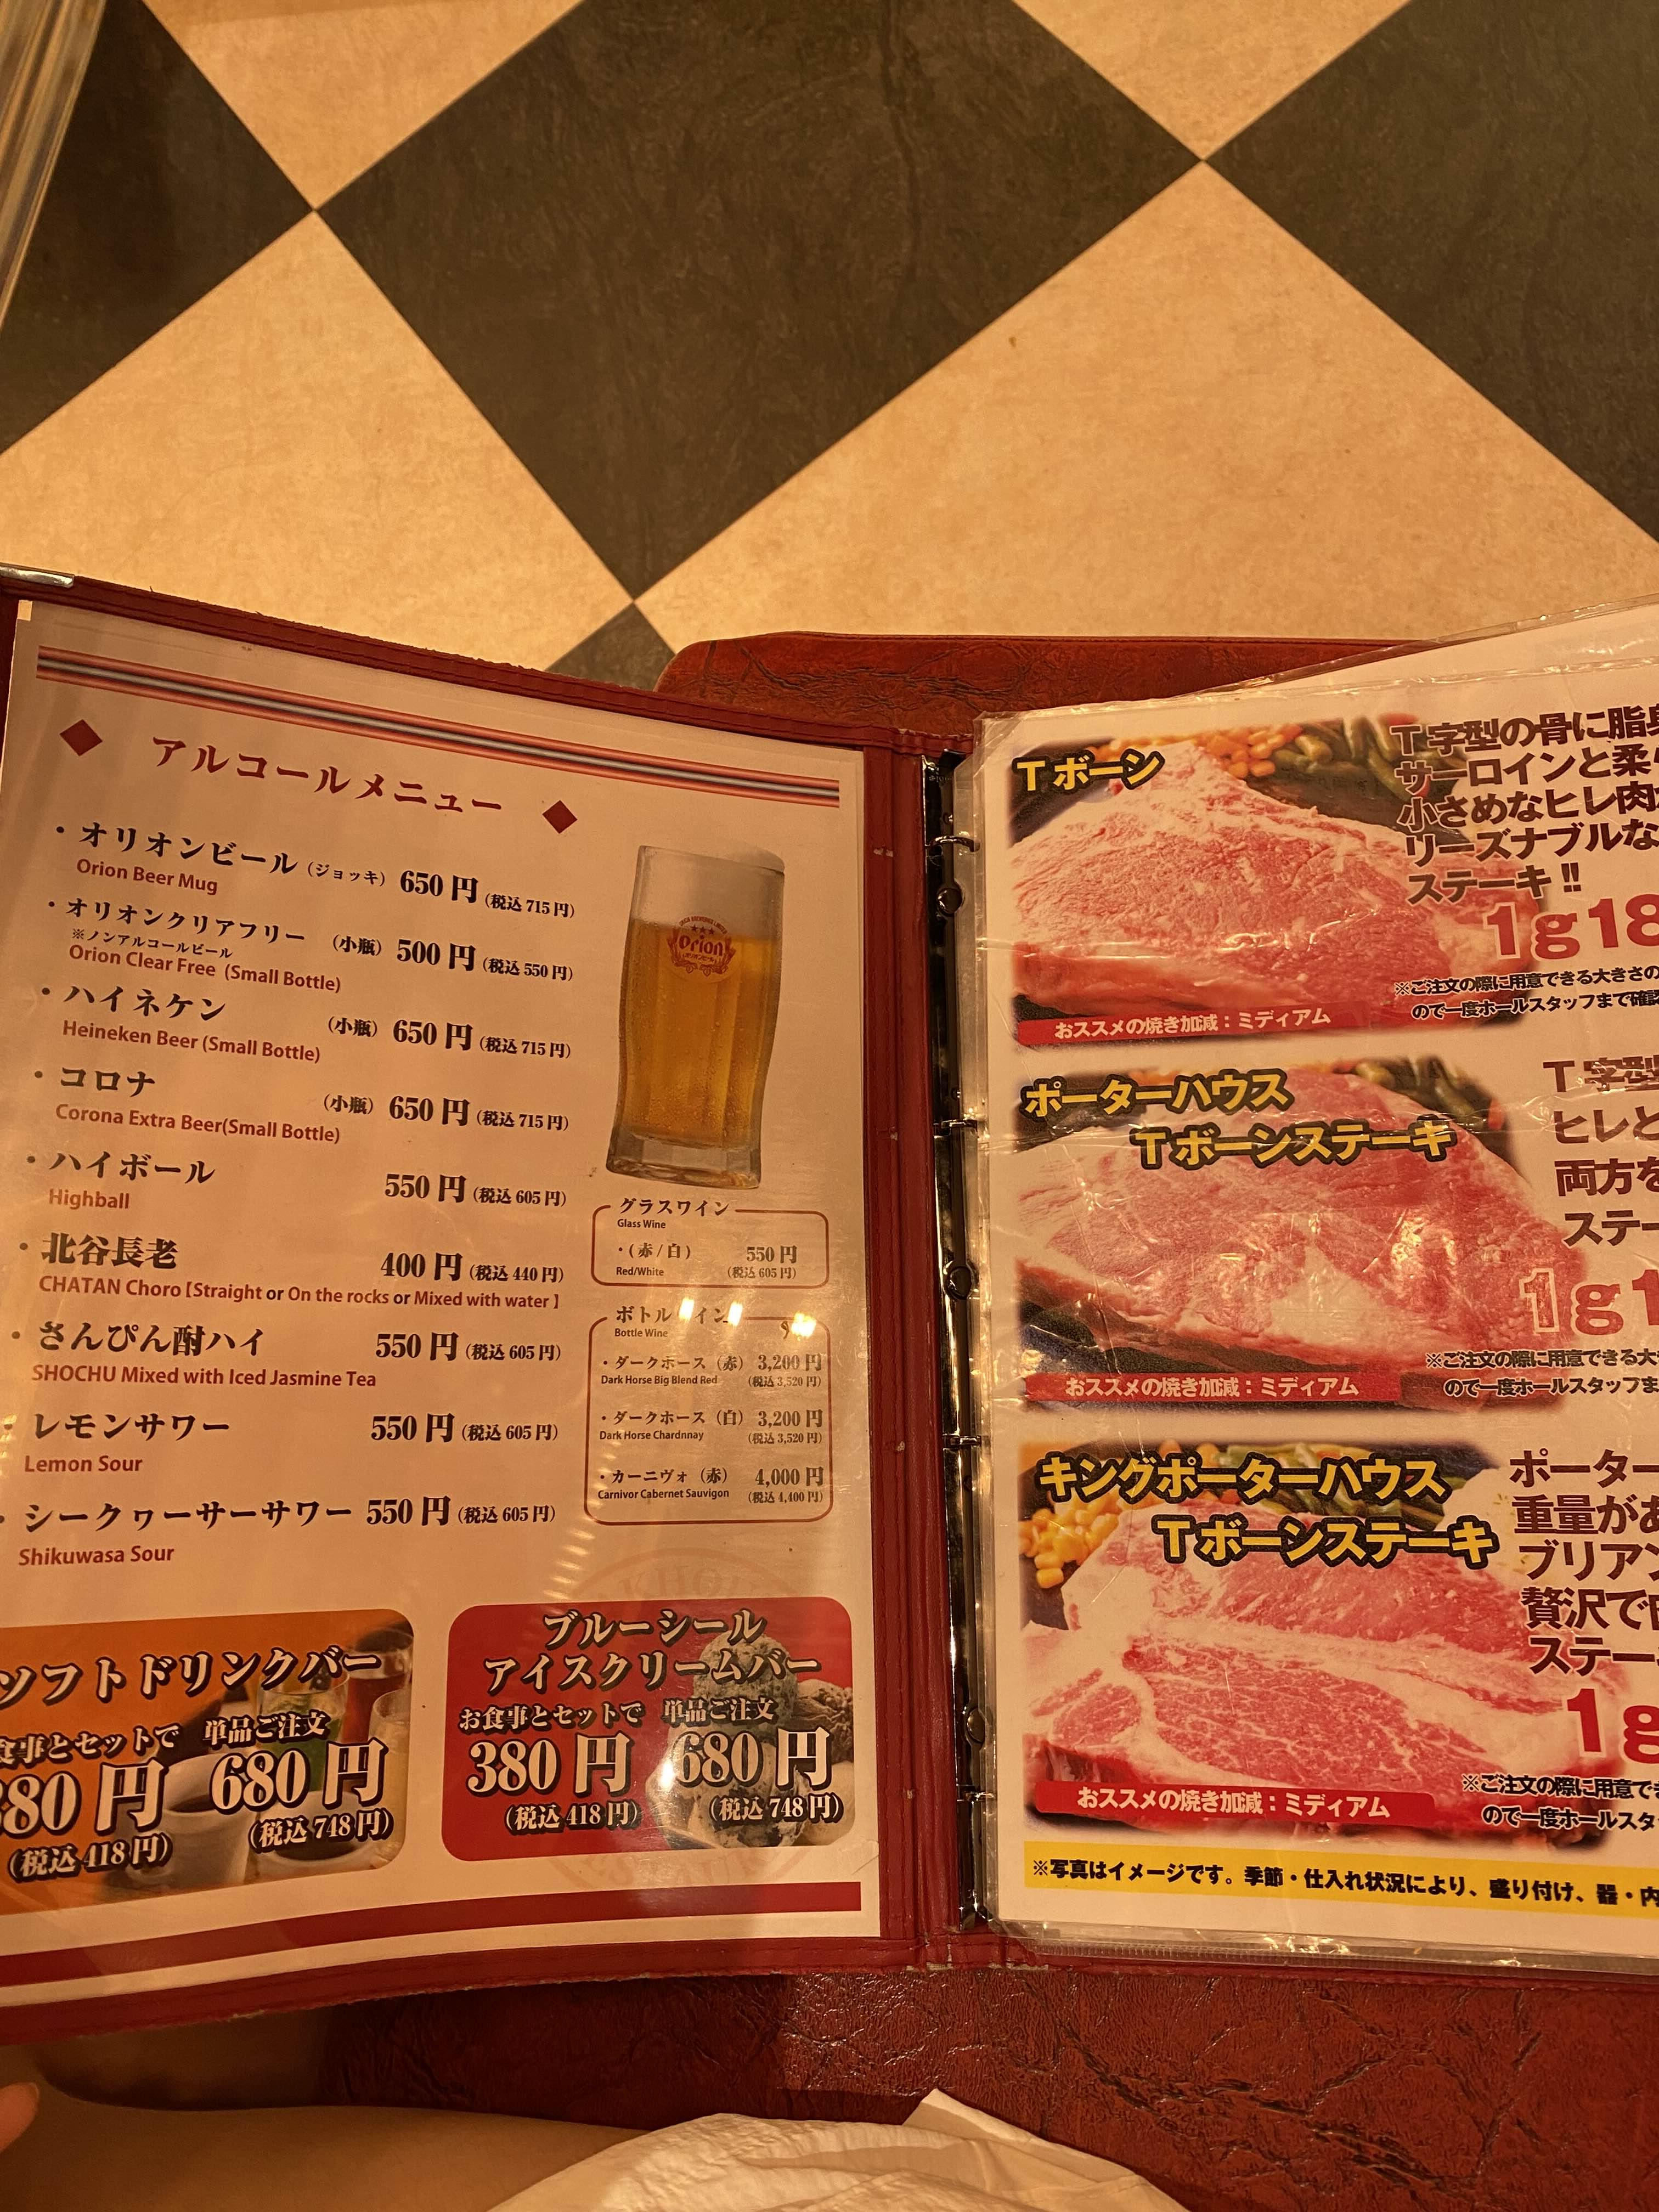 アルコールメニュー
・オリオンビール（ジョッキ） 650円（税込715円）
Orion Beer Mug
・オリオンクリアフリー （小瓶） 500円（税込550円）
※ノンアルコールビール
Orion Clear Free (Small Bottle)
・ハイネケン （小瓶） 650円（税込715円）
Heineken Beer (Small Bottle)
・コロナ （小瓶） 650円（税込715円）
Corona Extra Beer(Small Bottle)
・ハイボール 550円（税込605円）
Highball
・北谷長老 400円（税込440円）
CHATAN Choro【Straight or On the rocks or Mixed with water】
・さんぴん酎ハイ 550円（税込605円）
SHOCHU Mixed with Iced Jasmine Tea
・レモンサワー 550円（税込605円）
Lemon Sour
・シークヮーサーサワー 550円（税込605円）
Shikuwasa Sour
Orion
オリオンビール
グラスワイン
Glass Wine
・（赤/白） 550円
Red/White （税込605円）
ボトルワイン
Bottle Wine
・ダークホース（赤） 3,200円
Dark Horse Big Blend Red （税込3,520円）
・ダークホース（白） 3,200円
Dark Horse Chardnnay （税込3,520円）
・カーニヴォ（赤） 4,000円
Carnivor Cabernet Sauvigon （税込4,400円）
ソフトドリンクバー
食事とセットで 単品ご注文
380円 680円
（税込418円） （税込748円）
ブルーシール
アイスクリームバー
お食事とセットで 単品ご注文
380円 680円
（税込418円） （税込748円）
Tボーン
T字型の骨に脂身
サーロインと柔ら
小さめなヒレ肉
リーズナブルな
ステーキ!!
1g18
※ご注文の際に用意できる大きさの
ので一度ホールスタッフまで確認
おススメの焼き加減：ミディアム
ポーターハウス
Tボーンステーキ
T字型
ヒレと
両方を
ステー
1g1
※ご注文の際に用意できる大
ので一度ホールスタッフま
おススメの焼き加減：ミディアム
キングポーターハウス
Tボーンステーキ
ポーター
重量があ
ブリアン
贅沢で
ステー
1g
※ご注文の際に用意でき
ので一度ホールスタ
おススメの焼き加減：ミディアム
※写真はイメージです。季節・仕入れ状況により、盛り付け、器・内